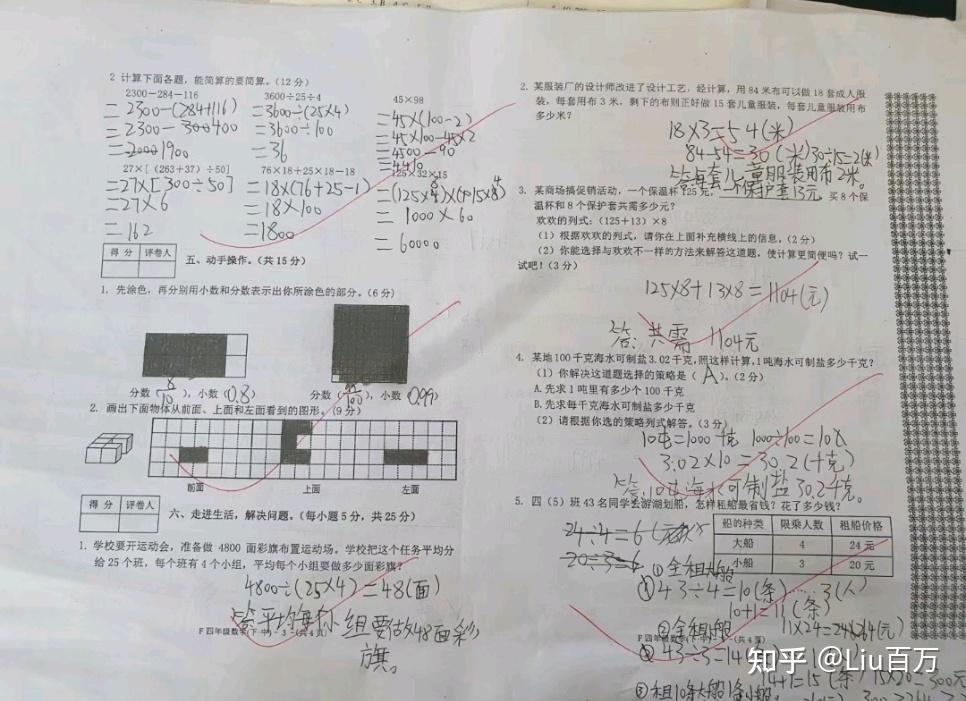 2 计算下面各题，能简算的要简算。(12分)
2300－284－116
＝2300－(284+116)
＝2300－300400
＝2000 1900
3600÷25÷4
＝3600÷(25×4)
＝3600÷100
＝36
45×98
＝45×(100－2)
＝45×100－45×2
＝4500－90
＝4410
27×[(263+37)÷50]
＝27×[300÷50]
＝27×6
＝162
76×18+25×18－18
＝18×(76+25－1)
＝18×100
＝1800
125×32×15
＝1000×60
＝60000
得 分 评卷人
五、动手操作。(共15分)
1. 先涂色，再分别用小数和分数表示出你所涂色的部分。(6分)
分数(8/10)，小数(0.8)
分数( /100)，小数(0.99)
2. 画出下面物体从前面、上面和左面看到的图形。(9分)
前面 上面 左面
得 分 评卷人
六、走进生活，解决问题。(每小题5分，共25分)
1. 学校要开运动会，准备做 4800 面彩旗布置运动场。学校把这个任务平均分
给25个班，每个班有4个小组，平均每个小组要做多少面彩旗？
4800÷(25×4)＝48(面)
答平均每小组要做48面彩
旗。
F四年级数学(下 中)－3－(共4页)
2. 某服装厂的设计师改进了设计工艺，经计算，用84米布可以做18套成人服
装，每套用布3米，剩下的布则正好做15套儿童服装，每套儿童服装用布
多少米？
18×3＝54(米)
84－54＝30(米)30÷15＝2(米)
答每套儿童服装用布2米。
3. 某商场搞促销活动，一个保温杯125元，一个保护套13元，买8个保
温杯和8个保护套共需多少元？
欢欢的列式：(125+13)×8
(1)根据欢欢的列式，请你在上面补充横线上的信息。(2分)
(2)你能选择与欢欢不一样的方法来解答这道题，使计算更简便吗？试一
试吧！(3分)
125×8+13×8＝1104(元)
答：共需 1104元
4. 某地100千克海水可制盐3.02千克，照这样计算，1吨海水可制盐多少千克？
(1)你解决这道题选择的策略是( A )。(2分)
A. 先求1吨里有多少个100千克
B. 先求每千克海水可制盐多少千克
(2)请根据你选的策略列式解答。(3分)
10吨＝1000千克 1000÷100＝10
3.02×10＝30.2(千克)
答：10吨海水可制盐30.2千克。
5. 四(5)班43名同学去游湖划船，怎样租船最省钱？花了多少钱？
船的种类 限乘人数 租船价格
大船 4 24元
小船 3 20元
24÷4＝6(元)
20÷3＝6
①全租大船
43÷4＝10(条)……3(人)
10+1＝11(条)
②全租小船
11×24＝264(元)
43÷3＝14(
14+1＝15(条)15×20＝300元
③租10条大船1条小船。
F四年级数学(下 中)－4－(共4页)
知乎 @Liu百万